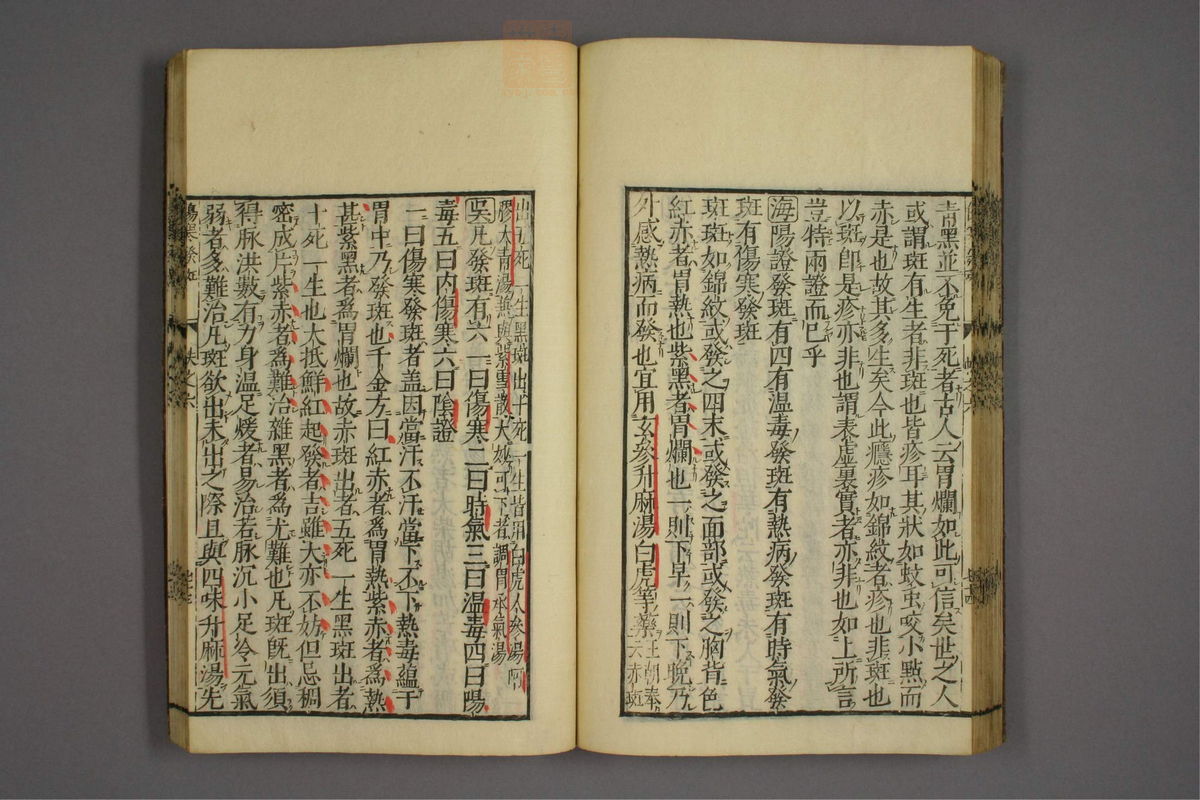 青黑並不免于死者古人云胃爛如此可信矣世之人
或謂斑有生者非斑也皆疹耳其狀如蚊虫咬小㸃而
赤是也故其多生矣今此癮疹如錦紋者疹也非斑也
以斑即是疹亦非也謂表虛裏實者亦非也如上所言
豈特兩證而已乎
海陽證發斑有四有温毒發斑有熱病發斑有時氣發
斑有傷寒發斑
斑斑如錦紋或發之四末或發之面部或發之胸背色
紅赤者胃熱也紫黑者胃爛也一則下早一則下晚乃
外感熱病而發也宜用玄參升麻湯白虎等藥王朝奉云赤斑
出五死一生黑斑出十死一生皆用白虎人參湯阿
膠大青湯兼與紫雪散大妙可下者調胃承氣湯
吳凡發斑有六一曰傷寒二曰時氣三曰温毒四曰陽
毒五曰内傷寒六曰陰證
一曰傷寒發斑者盖因當汗不汗當下不下熱毒蘊于
胃中乃發斑也千金方曰紅赤者爲胃熱紫赤者爲熱
甚紫黑者爲胃爛也故赤斑出者五死一生黑斑出者
十死一生也大抵鮮紅起發者吉雖大亦不妨但忌稠
密成片紫赤者爲難治雜黑者爲尤難也凡斑既出須
得脉洪數有力身温足煖者易治若脉沉小足冷元氣
弱者多難治凡斑欲出未出之際且與四味升麻湯先